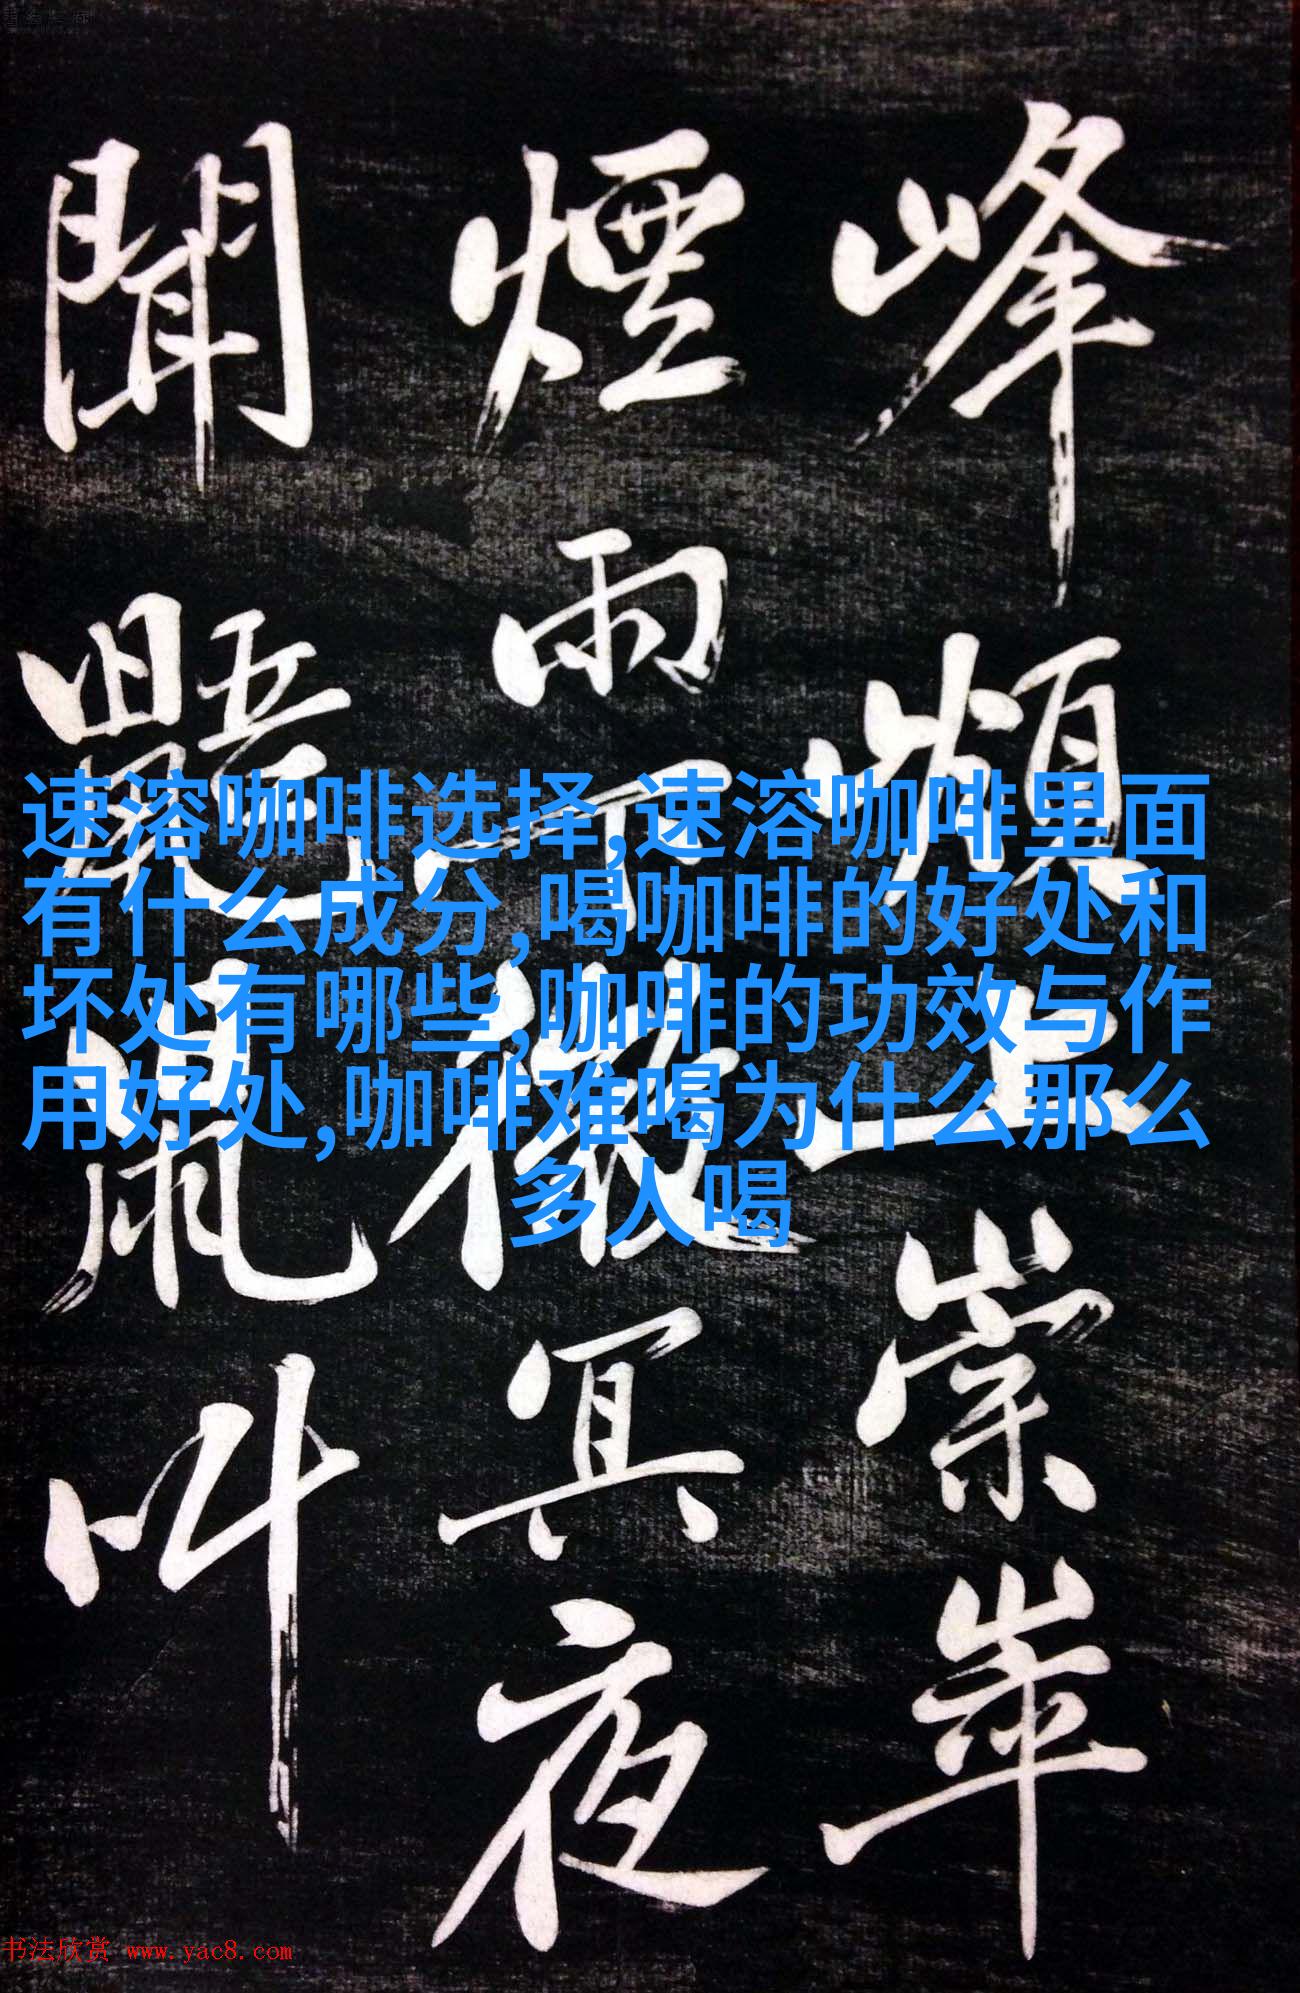 峰頻上崇崒
煙雨下微冥夜
聞鼯鼠叫
速溶咖啡选择,速溶咖啡里面
有什么成分,喝咖啡的好处和
坏处有哪些,咖啡的功效与作
用好处,咖啡难喝为什么那么
多人喝
书法欣赏 www.yac8.com